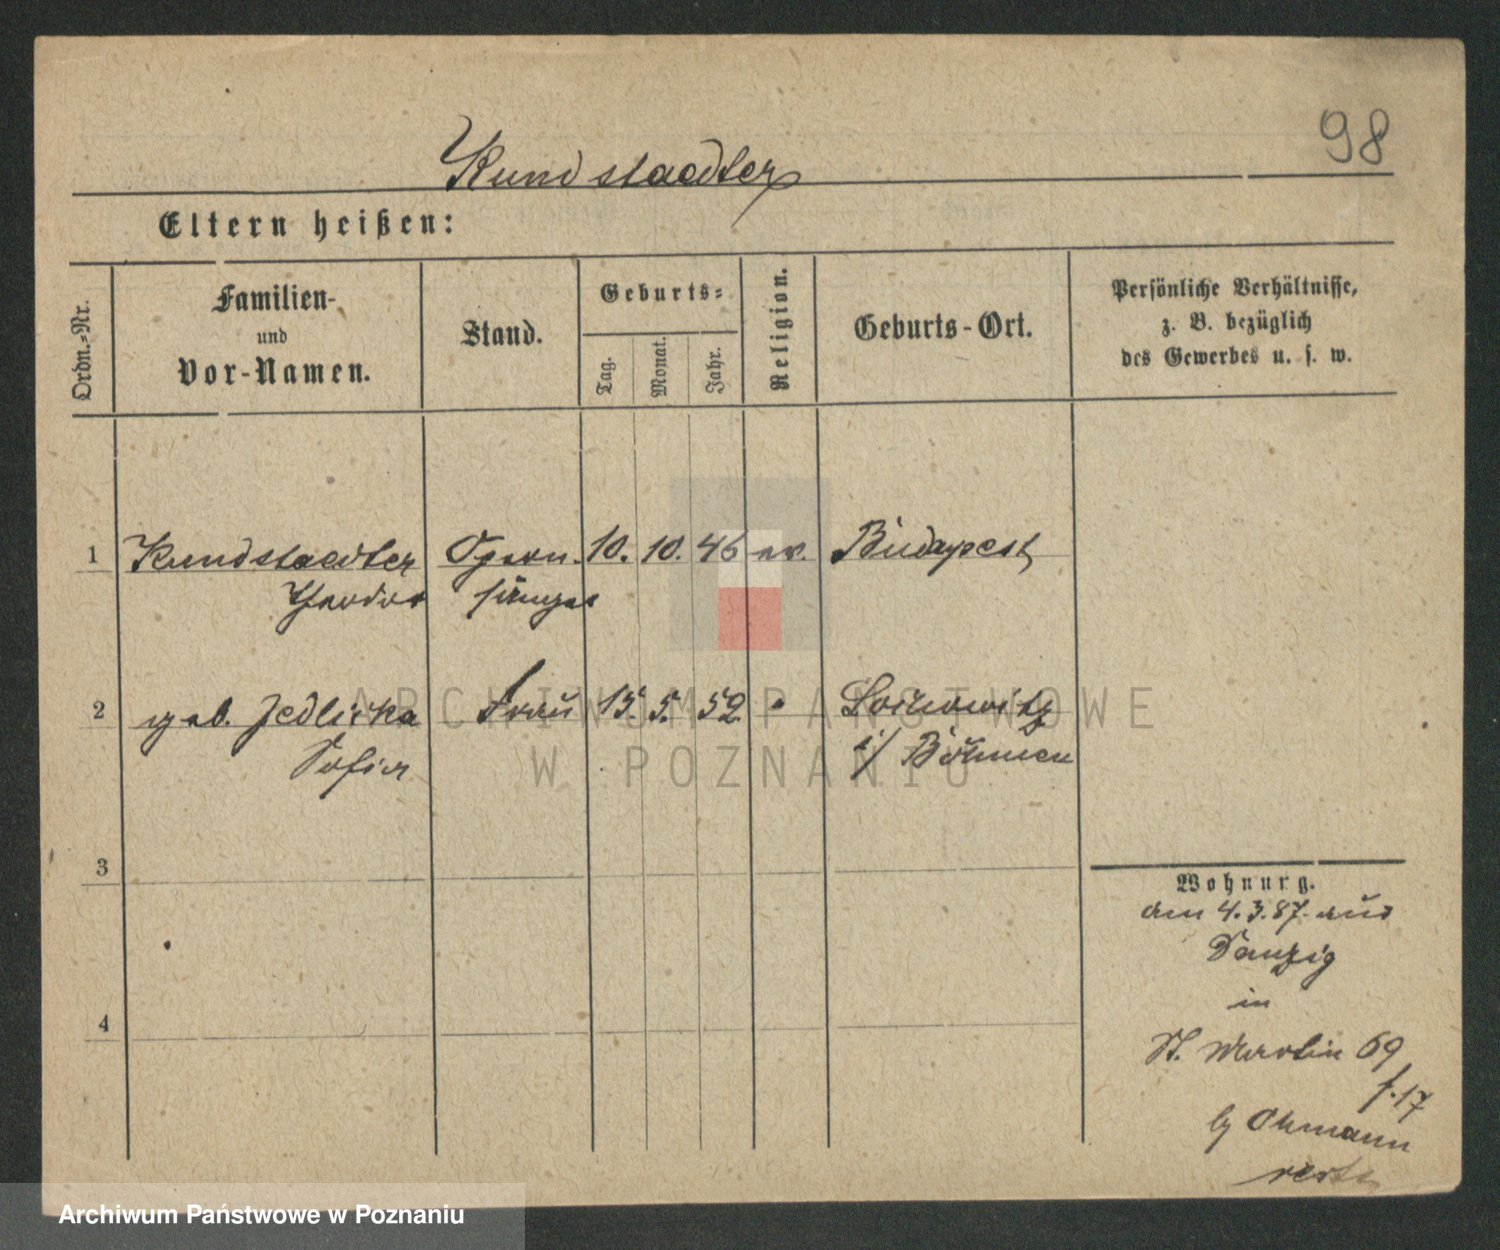 98
Kundstaedter
Eltern heißen:
Ordn.-Nr.
Familien-
und
Vor-Namen.
Stand.
Geburts-
Tag.
Monat.
Jahr.
Religion.
Geburts-Ort.
Persönliche Verhältnisse,
z. B. bezüglich
des Gewerbes u. s. w.
1 Kundstaedter Opern- 10. 10. 46 ev. Budapest
Theodor sänger
2 geb. Jedlicka Frau 15. 5. 52. "
Sofia i/ Böhmen
3
4
Wohnung.
am 4.3.87. aus
Danzig
in
St. Martin 69
f. 17
by Ohmann
verte
ARCHIWUM PAŃSTWOWE
W POZNANIU
Archiwum Państwowe w Poznaniu